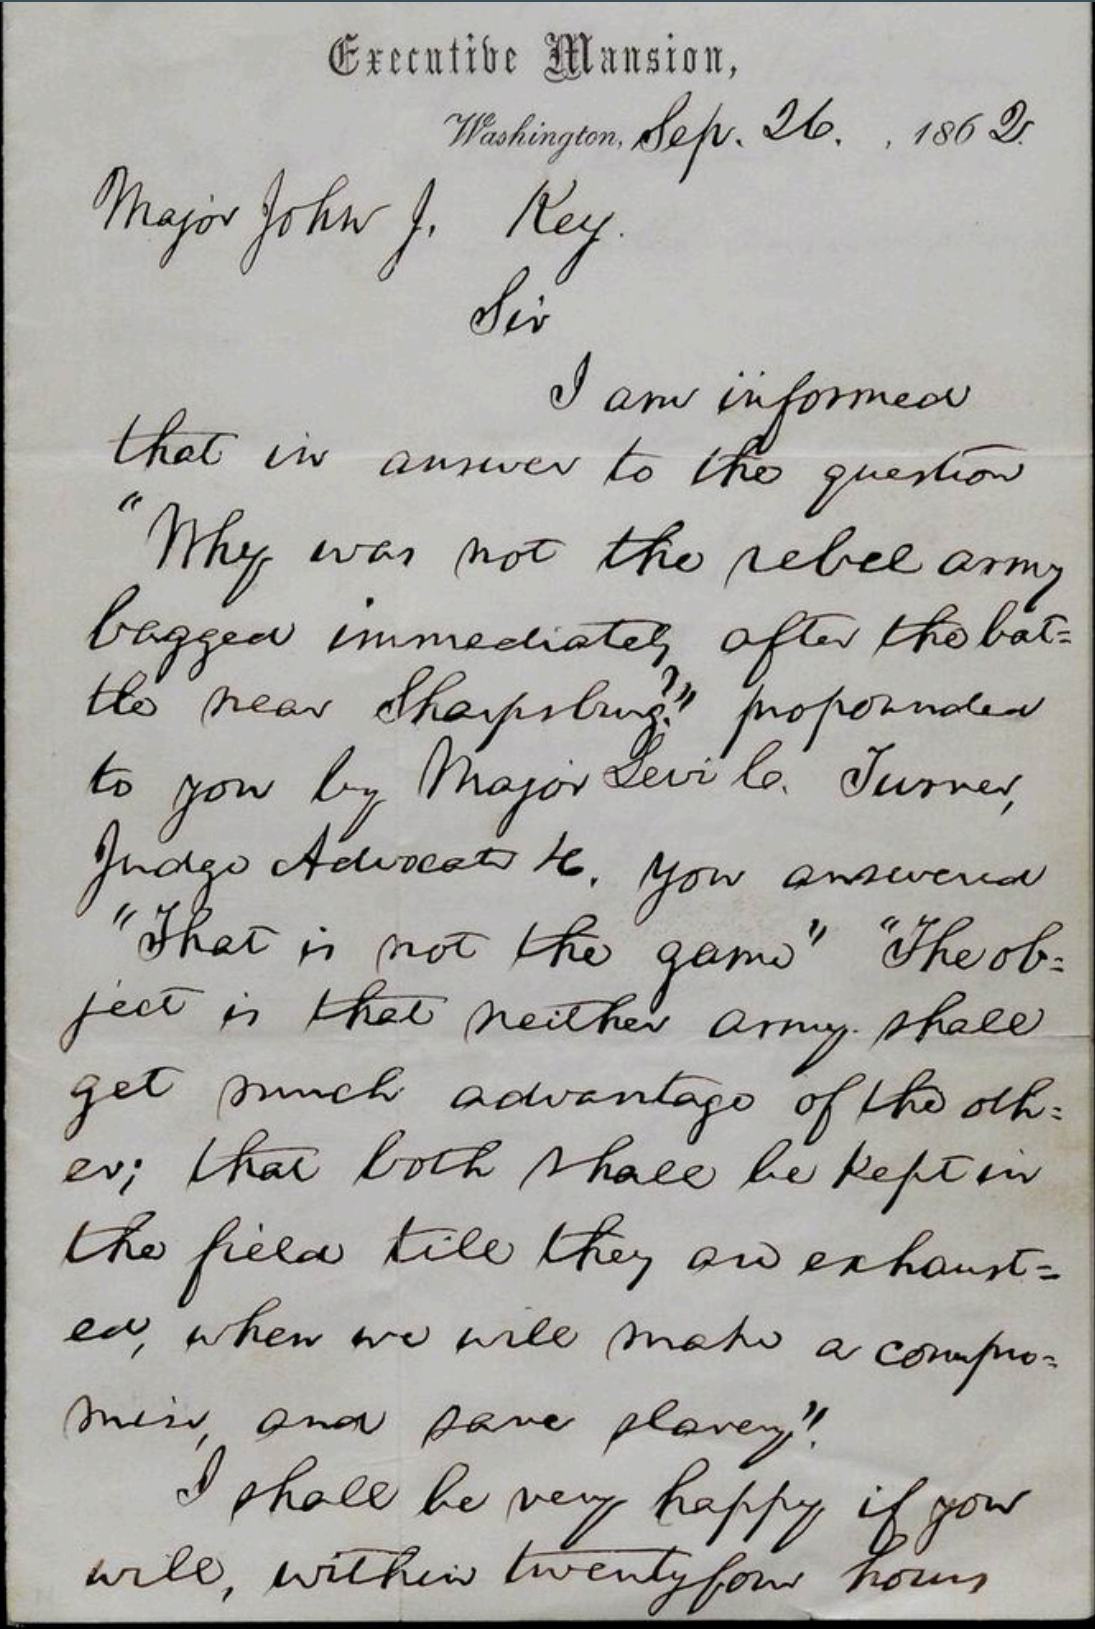 Executive Mansion,
Washington, Sep. 26. , 1862.
Major John J. Key.
Sir
I am informed
that in answer to the question
"Why was not the rebel army
bagged immediately after the bat=
tle near Sharpsburg?" propounded
to you by Major Levi C. Turner,
Judge Advocate &c. you answered
"That is not the game" "The ob=
ject is that neither army shall
get much advantage of the oth=
er; that both shall be kept in
the field till they are exhaust=
ed, when we will make a compro=
mise, and save slavery."
I shall be very happy if you
will, within twentyfour hours